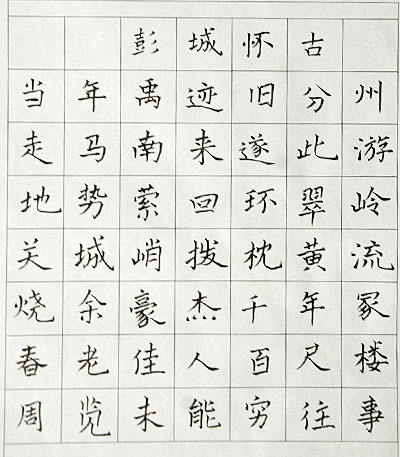 彭城怀古
当年禹迹旧分州
走马南来遂此游
地势萦回环翠岭
关城峭拨枕黄流
烧余豪杰千年冢
春老佳人百尺楼
周览未能穷往事